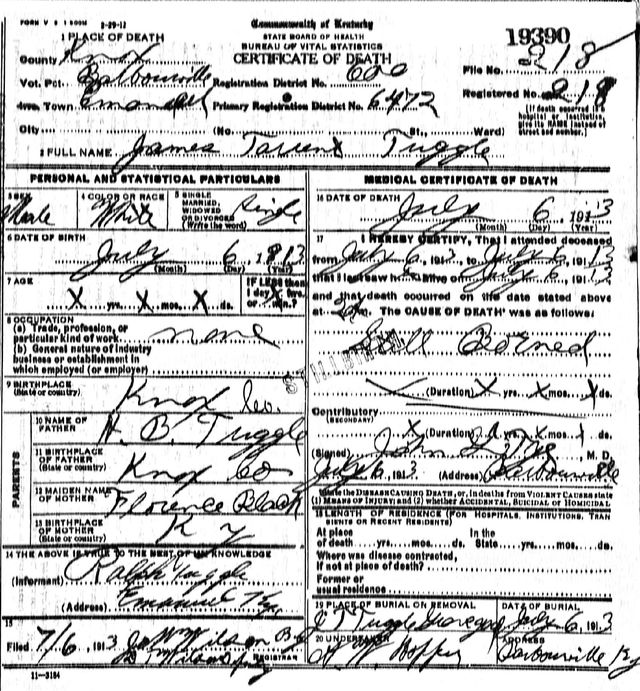 FORM V S 1 500M 3-29-12
Commonwealth of Kentucky
STATE BOARD OF HEALTH
BUREAU OF VITAL STATISTICS
CERTIFICATE OF DEATH
19390
1 PLACE OF DEATH
County Knox
Vot. Pct. Barbourville Registration District No. 600
File No. 218
Town Emanuel Primary Registration District No. 6472
Registered No. 218
City (No. St., Ward)
[If death occurred in a hospital or institution, give its NAME instead of street and number.]
2 FULL NAME James Tuggle
PERSONAL AND STATISTICAL PARTICULARS
3 SEX Male
4 COLOR OR RACE White
5 SINGLE, MARRIED, WIDOWED OR DIVORCED (Write the word) Single
6 DATE OF BIRTH July 6 1913
(Month) (Day) (Year)
7 AGE X yrs. X mos. X ds.
IF LESS than 1 day X hrs. or min.?
8 OCCUPATION
(a) Trade, profession, or particular kind of work none
(b) General nature of industry business or establishment in which employed (or employer)
9 BIRTHPLACE (State or country) Knox Co.
PARENTS
10 NAME OF FATHER H. B. Tuggle
11 BIRTHPLACE OF FATHER (State or country) Knox Co
12 MAIDEN NAME OF MOTHER Florence Black
13 BIRTHPLACE OF MOTHER (State or country) Ky
14 THE ABOVE IS TRUE TO THE BEST OF MY KNOWLEDGE
(Informant) Ralph Tuggle
(Address) Emanuel Ky
15
Filed 7/6, 1913 Wm Wilson
REGISTRAR
11-3184
MEDICAL CERTIFICATE OF DEATH
16 DATE OF DEATH July 6, 1913
(Month) (Day) (Year)
17 I HEREBY CERTIFY, That I attended deceased
from July 6, 1913, to July 6, 1913
that I last saw h alive on July 6, 1913
and that death occurred on the date stated above
at m. The CAUSE OF DEATH* was as follows:
Still Borned
STILLBORN
(Duration) X yrs. X mos. X ds.
Contributory
(SECONDARY)
X (Duration) X yrs. X mos. X ds.
(Signed) M. D.
July 6, 1913 (Address) Barbourville
*State the DISEASE CAUSING DEATH, or, in deaths from VIOLENT CAUSES state (1) MEANS OF INJURY and (2) whether ACCIDENTAL, SUICIDAL or HOMICIDAL
18 LENGTH OF RESIDENCE (FOR HOSPITALS, INSTITUTIONS, TRANSIENTS OR RECENT RESIDENTS)
At place of death yrs. mos. ds. In the State yrs. mos. ds.
Where was disease contracted, if not at place of death?
Former or usual residence
19 PLACE OF BURIAL OR REMOVAL Tuggle
DATE OF BURIAL July 6, 1913
20 UNDERTAKER Hopper
ADDRESS Barbourville Ky